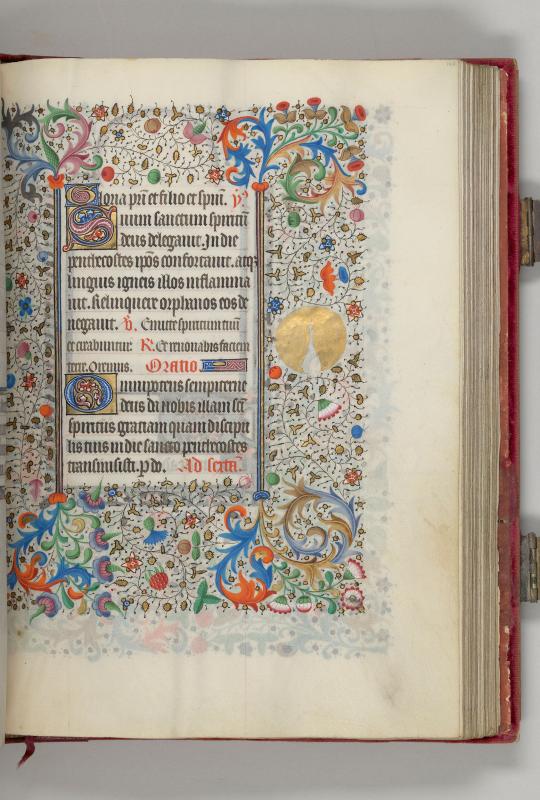 Gloria pri et filio et spui. ỹ
Suum sanctum spiritū
deus delegauit. In die
penthecostes ipōs confortauit. atq̄
linguis igneis illos inflamma
uit. Relinquere orphanos eos de
negauit. V̄. Emitte spiritum tuū
et creabuntur. R̄. Et renouabis faciem
terre. Oremus. Oratio
Omnipotens sempiterne
deus da nobis illam sc̄i
spiritus gratiam quam discipu
lis tuis in die sancto penthecostes
transmisisti. p do. Ad sextā.